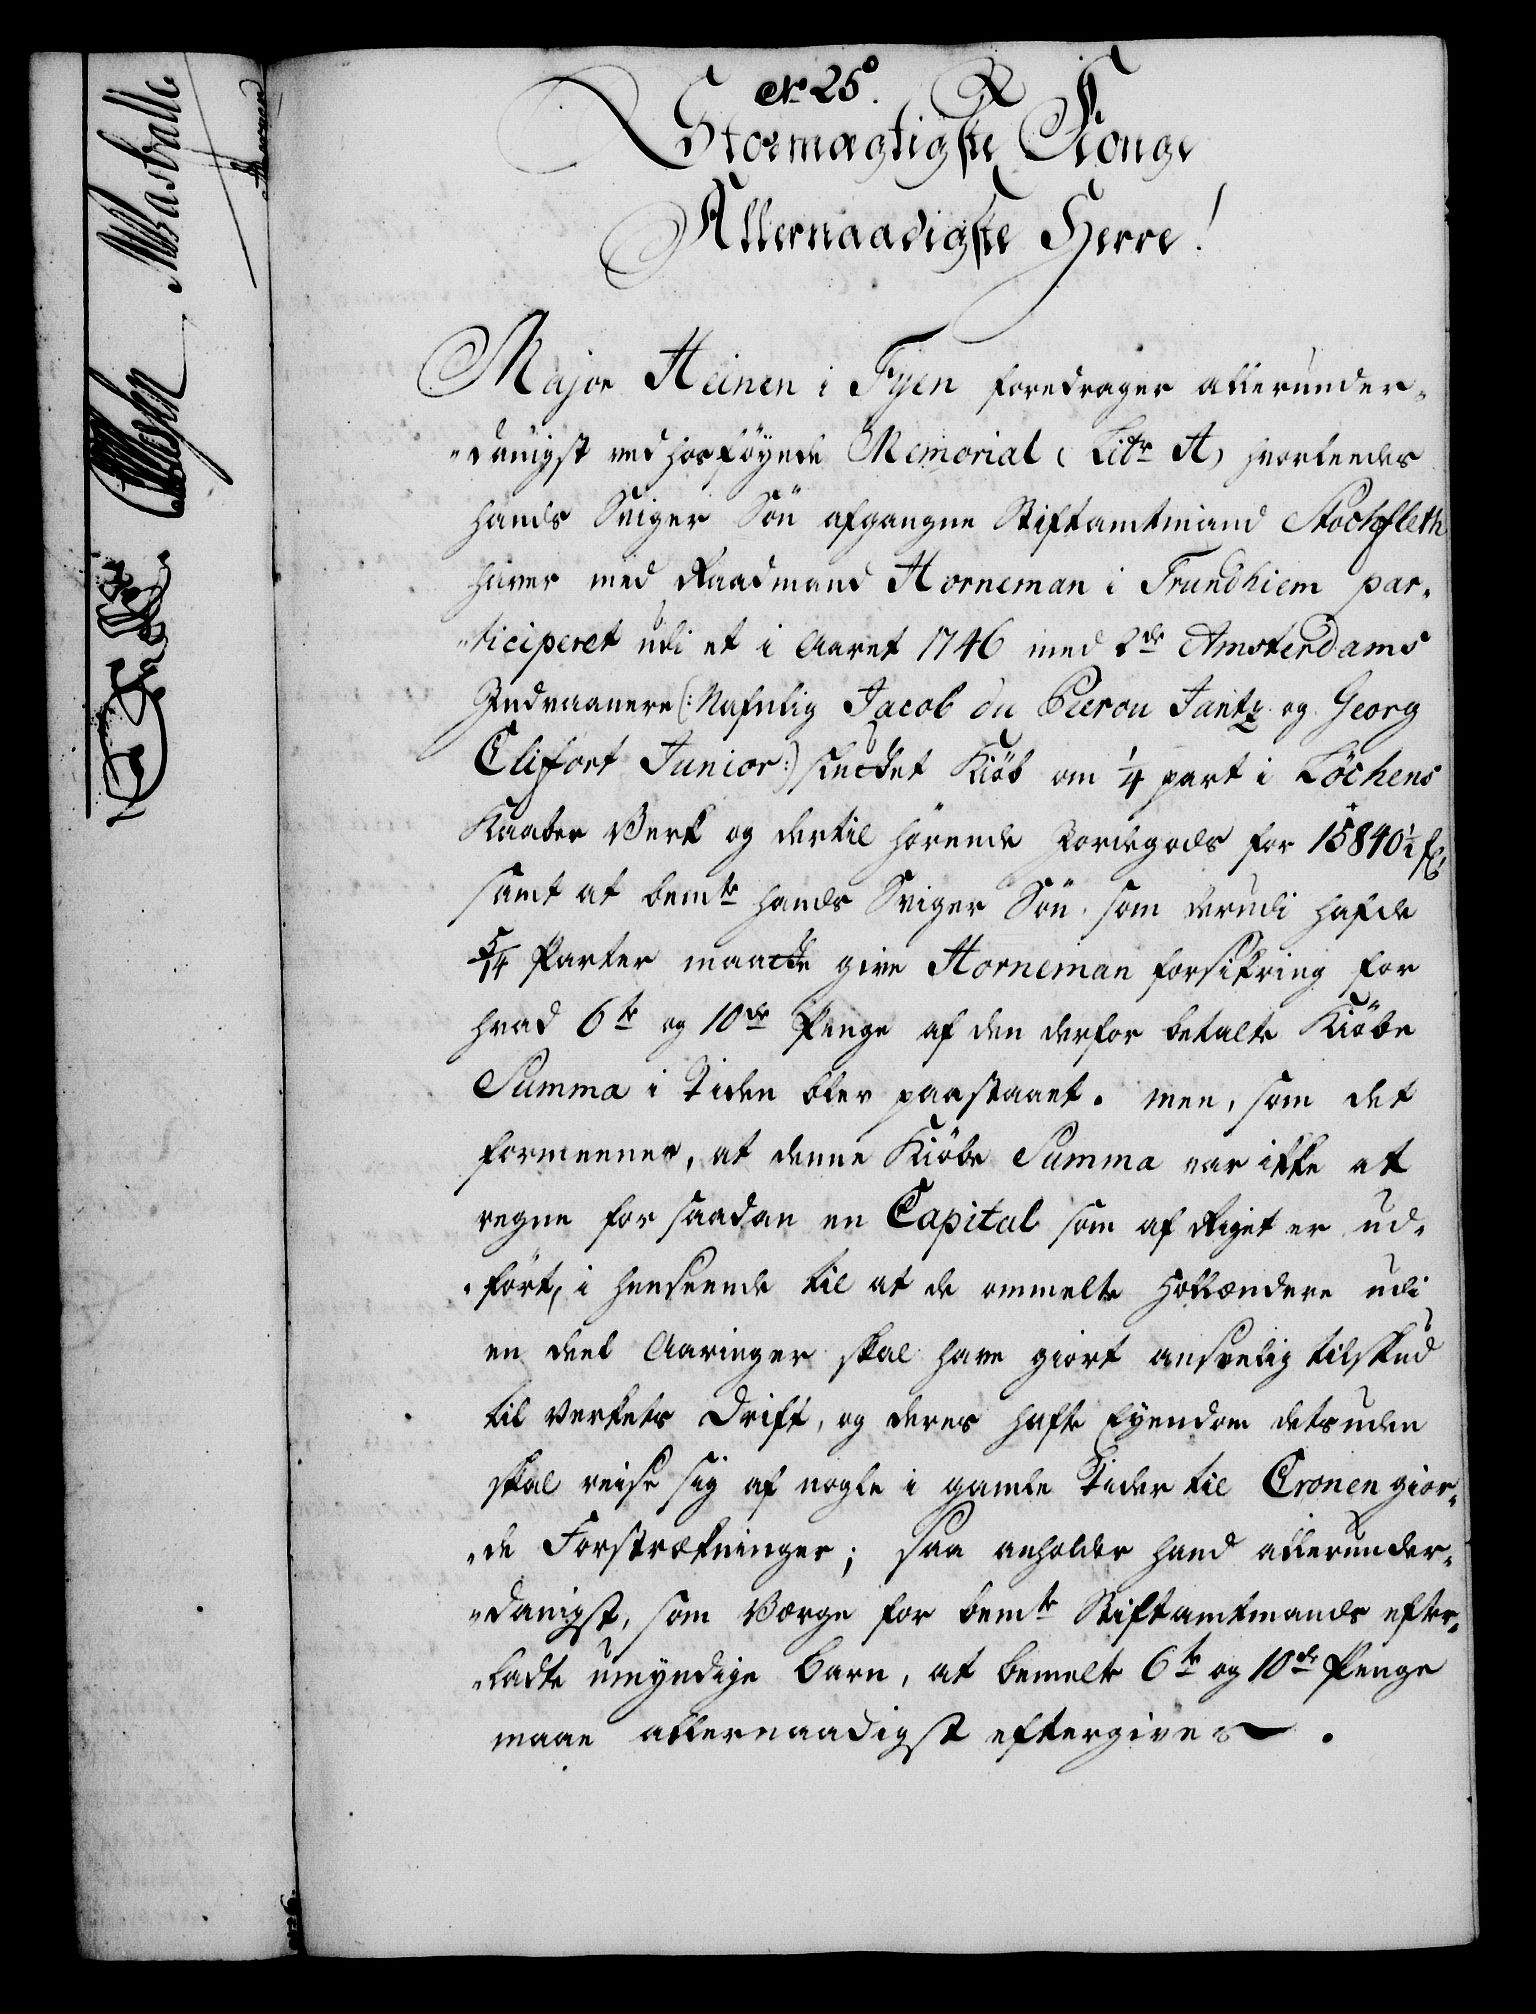 No 25.
Stormægtigste Konge
Allernaadigste Herre!
Major Heinen i Fyen foredrager allerunder-
-danigst ved hosføyede Memorial (Litr A) hvorledes
hands Sviger Søn afgangne Stiftamtmand Stockfleth
haver med Raadmand Horneman i Trundhiem par-
-ticiperet udi et i Aaret 1746 med 2de Amsterdams
Indvaanere (: Nafnlig Jacob du Pierou Jantz og Georg
Clifort Junior:) sluttet Kiöb om 1/4 part i Löchens
Kaaber Verk og dertil hörende Jordegods for 15840½ f
samt at bemte hands Sviger Søn som derudi hafde
5/14 Parter maatte give Horneman forsikring for
hvad 6te og 10de Penge af den derfor betalte Kiöbe
Summa i Tiden blev paastaaet. men, som det
formeenes, at denne Kiöbe Summa var ikke at
regne for saadan en Capital som af Riget er ud-
-fört, i henseende til at de ommelte Hollændere udi
en deel Aaringer skal have giort anseelig tilskud
til Verkets Drift, og deres hafte Eyendom dets uden
skal reise sig af nogle i gamle Tider til Cronen gior-
-de Forstrækninger; saa anholder hand allerunder-
-danigst, som Værge for bemte Stiftamtmands efter-
-ladte umyndige Barn, at bemelte 6te og 10de Penge
maae allernaadigst eftergives.